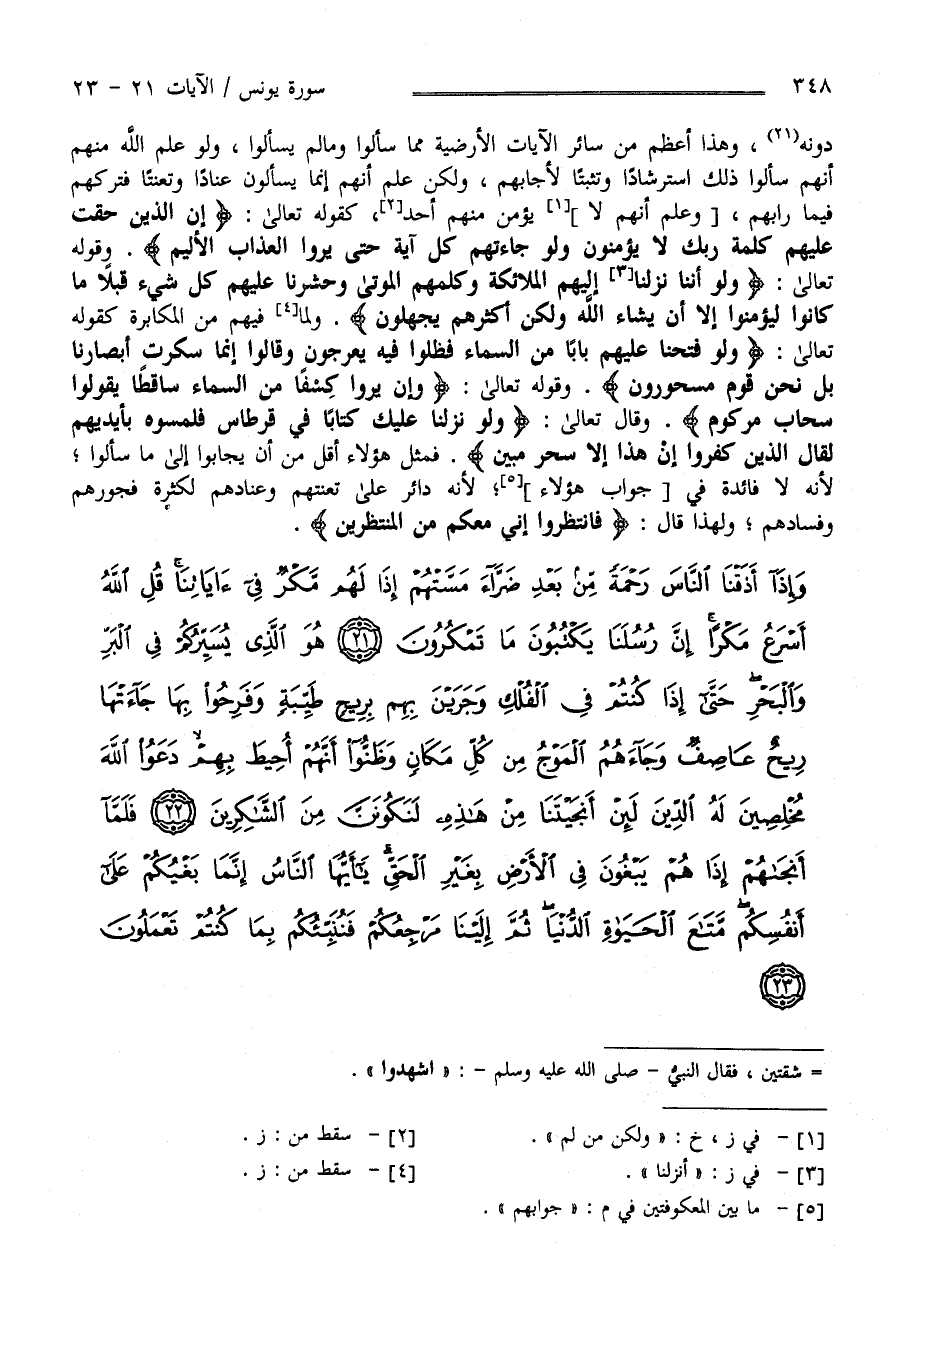 ٣٤٨ سورة يونس / الآيات ٢١ - ٢٣
دونه(٢١) ، وهذا أعظم من سائر الآيات الأرضية مما سألوا ومالم يسألوا ، ولو علم الله منهم
أنهم سألوا ذلك استرشادًا وتثبتًا لأجابهم ، ولكن علم أنهم إنما يسألون عنادًا وتعنتًا فتركهم
فيما رابهم ، [ وعلم أنهم لا ][١] يؤمن منهم أحد[٢]، كقوله تعالىٰ : ﴿ إن الذين حقت
عليهم كلمة ربك لا يؤمنون ولو جاءتهم كل آية حتى يروا العذاب الأليم ﴾ . وقوله
تعالىٰ : ﴿ ولو أننا نزلنا[٣] إليهم الملائكة وكلمهم الموتىٰ وحشرنا عليهم كل شيء قبلًا ما
كانوا ليؤمنوا إلا أن يشاء الله ولكن أكثرهم يجهلون ﴾ . ولما[٤] فيهم من المكابرة كقوله
تعالىٰ : ﴿ ولو فتحنا عليهم بابًا من السماء فظلوا فيه يعرجون وقالوا إنما سكرت أبصارنا
بل نحن قوم مسحورون ﴾ . وقوله تعالىٰ : ﴿ وإن يروا كِسْفًا من السماء ساقطًا يقولوا
سحاب مركوم ﴾ . وقال تعالىٰ : ﴿ ولو نزلنا عليك كتابًا في قرطاس فلمسوه بأيديهم
لقال الذين كفروا إنْ هذا إلا سحر مبين ﴾ . فمثل هؤلاء أقل من أن يجابوا إلىٰ ما سألوا ؛
لأنه لا فائدة في [ جواب هؤلاء ][٥]؛ لأنه دائر علىٰ تعنتهم وعنادهم لكثرة فجورهم
وفسادهم ؛ ولهذا قال : ﴿ فانتظروا إني معكم من المنتظرين ﴾ .
وَإِذَآ أَذَقْنَا ٱلنَّاسَ رَحْمَةً مِّنۢ بَعْدِ ضَرَّآءَ مَسَّتْهُمْ إِذَا لَهُم مَّكْرٌ فِىٓ ءَايَاتِنَا ۚ قُلِ ٱللَّهُ
أَسْرَعُ مَكْرًا ۚ إِنَّ رُسُلَنَا يَكْتُبُونَ مَا تَمْكُرُونَ ﴿٢١﴾ هُوَ ٱلَّذِى يُسَيِّرُكُمْ فِى ٱلْبَرِّ
وَٱلْبَحْرِ ۖ حَتَّىٰٓ إِذَا كُنتُمْ فِى ٱلْفُلْكِ وَجَرَيْنَ بِهِم بِرِيحٍ طَيِّبَةٍ وَفَرِحُوا۟ بِهَا جَآءَتْهَا
رِيحٌ عَاصِفٌ وَجَآءَهُمُ ٱلْمَوْجُ مِن كُلِّ مَكَانٍ وَظَنُّوٓا۟ أَنَّهُمْ أُحِيطَ بِهِمْ ۙ دَعَوُا۟ ٱللَّهَ
مُخْلِصِينَ لَهُ ٱلدِّينَ لَئِنْ أَنجَيْتَنَا مِنْ هَـٰذِهِۦ لَنَكُونَنَّ مِنَ ٱلشَّـٰكِرِينَ ﴿٢٢﴾ فَلَمَّآ
أَنجَىٰهُمْ إِذَا هُمْ يَبْغُونَ فِى ٱلْأَرْضِ بِغَيْرِ ٱلْحَقِّ ۗ يَـٰٓأَيُّهَا ٱلنَّاسُ إِنَّمَا بَغْيُكُمْ عَلَىٰٓ
أَنفُسِكُم ۖ مَّتَـٰعَ ٱلْحَيَوٰةِ ٱلدُّنْيَا ۖ ثُمَّ إِلَيْنَا مَرْجِعُكُمْ فَنُنَبِّئُكُم بِمَا كُنتُمْ تَعْمَلُونَ
﴿٢٣﴾
= شقتين ، فقال النبيُّ - صلى الله عليه وسلم - : « اشهدوا » .
[١] - في ز ، خ : « ولكن من لم » . [٢] - سقط من : ز .
[٣] - في ز : « أنزلنا » . [٤] - سقط من : ز .
[٥] - ما بين المعكوفتين في م : « جوابهم » .